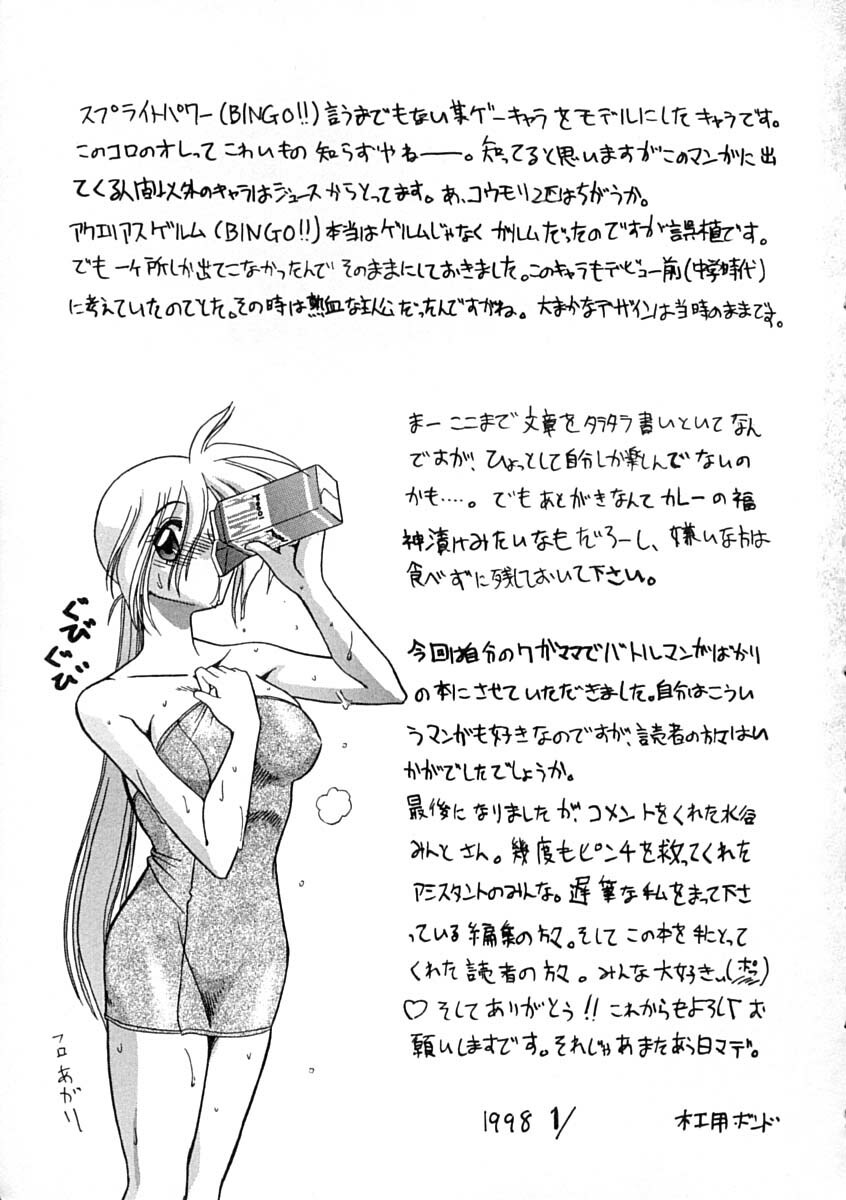 スプライトパワー(BINGO!!)言うまでもない某ゲーキャラをモデルにしたキャラです。
このコロのオレってこわいもの知らずやねーー。知ってると思いますがこのマンガに出
てくる人間以外のキャラはジュースからとってます。あ、コウモリ2匹はちがうか。
アクエリアスゲルム(BINGO!!)本当はゲルムじゃなくガルムだったのですが誤植です。
でも一ヶ所しか出てこなかったんでそのままにしておきました。このキャラもデビュー前(中学時代)
に考えていたのでした。その時は熱血な主人公だったんですがね。大まかなデザインは当時のままです。
まーここまで文章をタラタラ書いといてなん
ですが、ひょっとして自分しか楽しんでないの
かも‥‥。でもあとがきなんてカレーの福
神漬けみたいなもだろーし、嫌いな方は
食べずに残しておいて下さい。
今回は自分のワガママでバトルマンガばかり
の本にさせていただきました。自分はこうい
うマンガも好きなのですが、読者の方々はい
かがでしたでしょうか。
最後になりましたが、コメントをくれた水谷
みんとさん。幾度もピンチを救ってくれた
アシスタントのみんな。遅筆な私をまって下さ
っている編集の方々。そしてこの本を手にとって
くれた読者の方々。みんな大好き(ポッ)
♡そしてありがとう!!これからもよろしくお
願いしますです。それじゃあまた会う日マデ。
ぐびぐび
フロあがり
1998 1/ 木工用ボンド